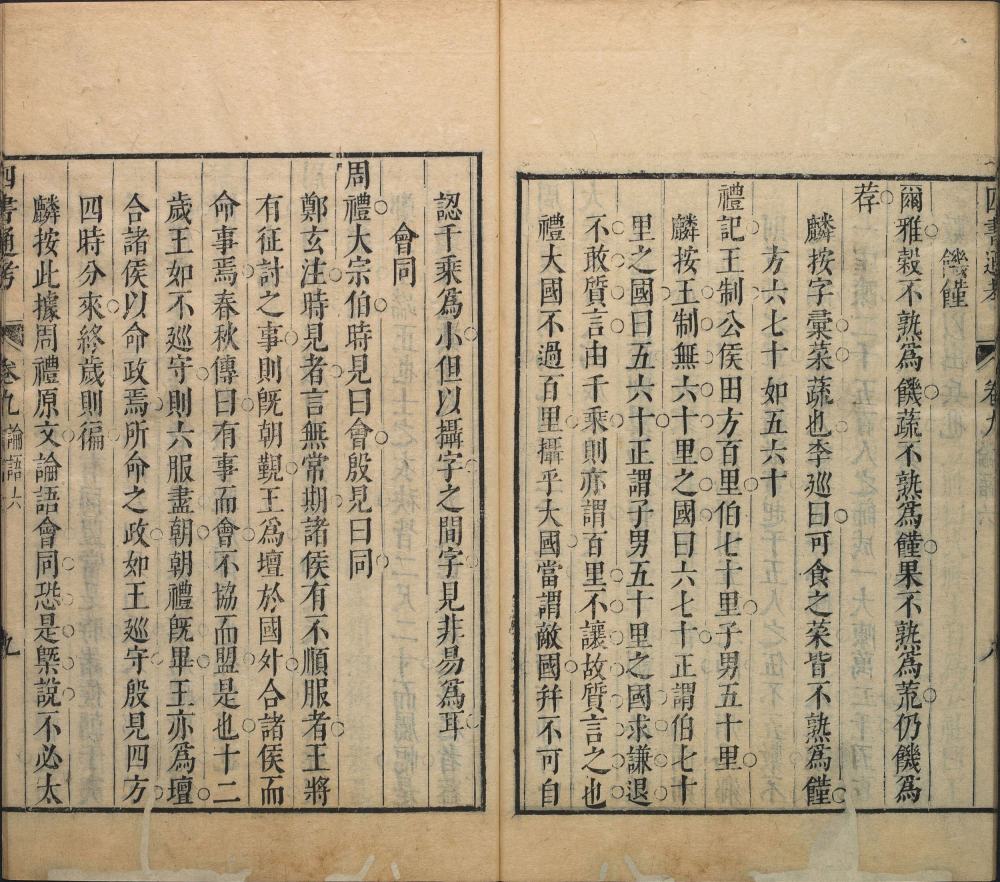 饑饉
爾雅穀不熟爲饑蔬不熟爲饉果不熟爲荒仍饑爲
荐
麟按字彙菜蔬也李巡曰可食之菜皆不熟爲饉
方六七十如五六十
禮記王制公侯田方百里伯七十里子男五十里
麟按王制無六十里之國曰六七十正謂伯七十
里之國曰五六十正謂子男五十里之國求謙退
不敢質言由千乘則亦謂百里不讓故質言之也
禮大國不過百里攝乎大國當謂敵國幷不可自
認千乘爲小但以攝字之間字見非易爲耳
會同
周禮大宗伯時見曰會殷見曰同
鄭玄注時見者言無常期諸侯有不順服者王將
有征討之事則旣朝覲王爲壇於國外合諸侯而
命事焉春秋傳曰有事而會不協而盟是也十二
歲王如不廵守則六服盡朝朝禮旣畢王亦爲壇
合諸侯以命政焉所命之政如王廵守殷見四方
四時分來終歲則徧
麟按此據周禮原文論語會同恐是槩說不必太
四書通考 卷九 論語六 九